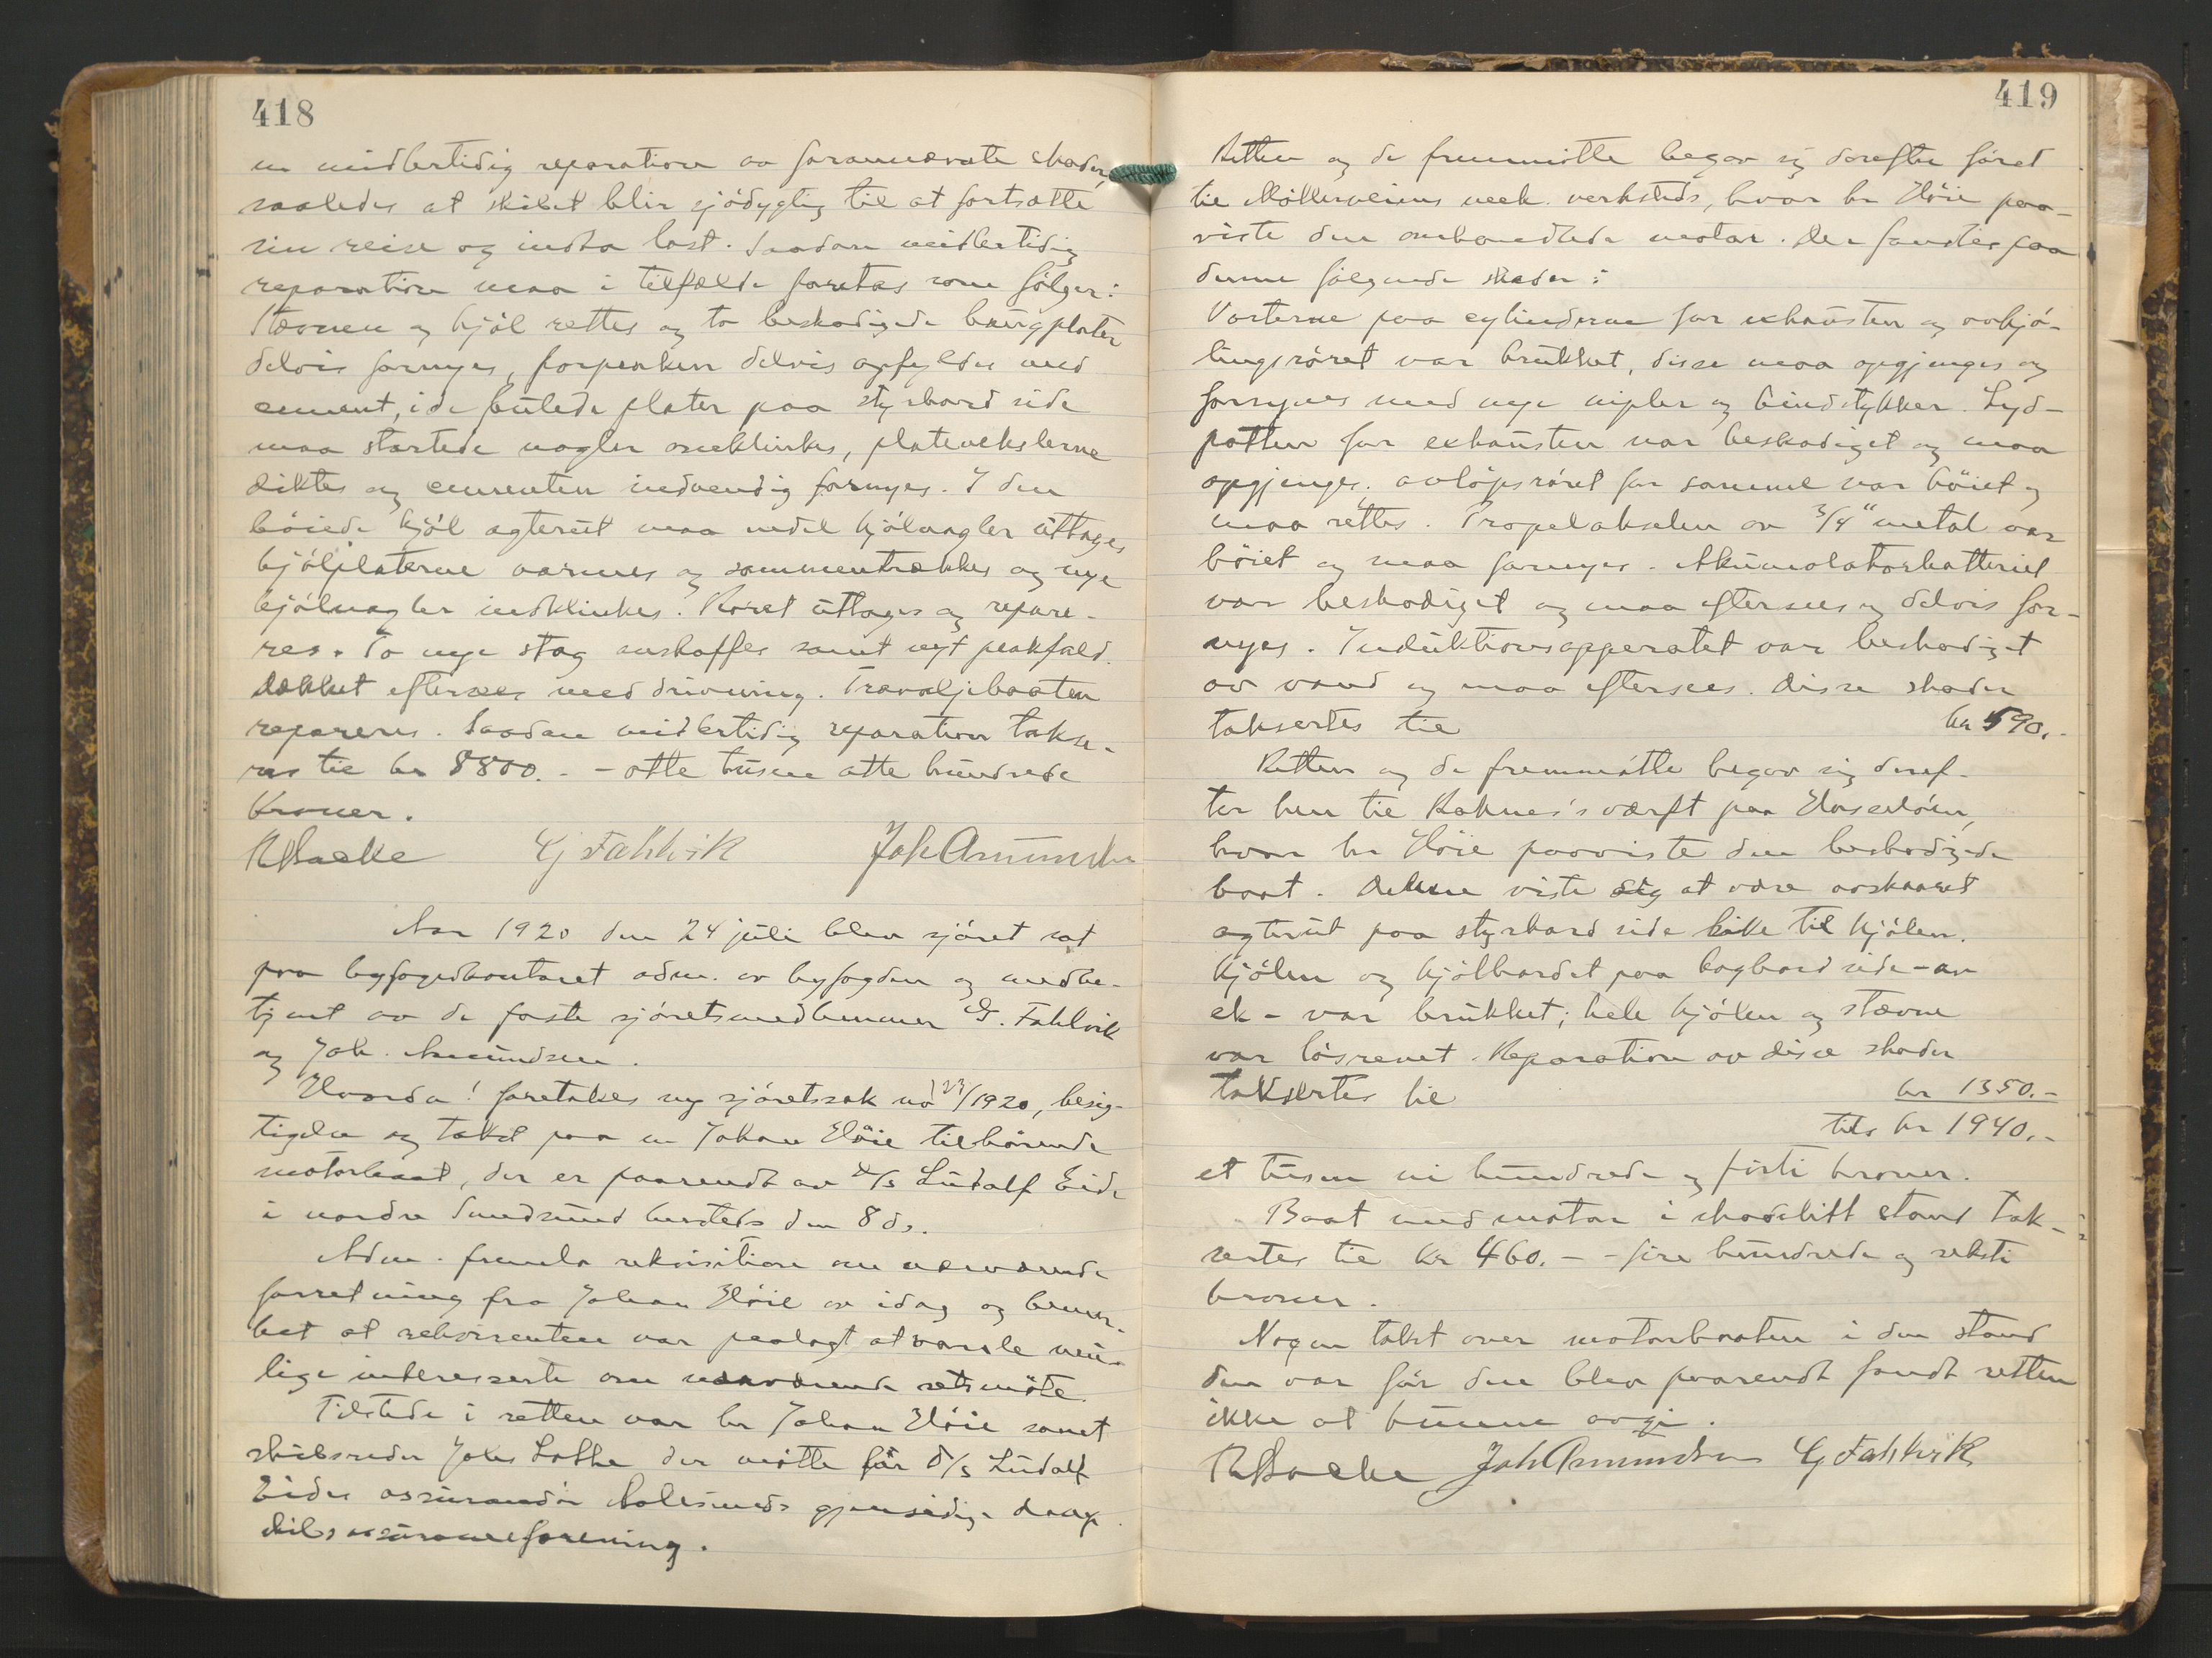 418
en midlertidig reparation av forannævnte skader,
saaledes at skibet blir sjödygtig til at fortsætte
sin reise og indta last. Saadan midlertidig
reparation maa i tilfælde foretas som fölger:
Stævnen og kjöl rettes og to beskadigede baugplater
delvis fornyes, forpeaken delvis opfyldes med
cement, i de bulede plater paa styrbord side
maa startede nagler omklinkes, platevekslerne
diktes og cementen indvendig fornyes. I den
böiede kjöl agterut maa endel kjölnagler uttages
kjölplaterne varmes og sammentrækkes og nye
kjölnagler indklinkes. Roret uttages og repare-
res. To nye stag anskaffes samt nyt peakfald.
Dækket eftersees med drivning. Travaljebaaten
repareres. Saadan midlertidig reparation takse-
res til kr 8800.- - otte tusen otte hundrede
kroner.
RBacke G Fahlvik Joh Amundsen
Aar 1920 den 24 juli blev sjöret sat
paa byfogedkontoret adm. av byfogden og medbe-
tjent av de faste sjöretsmedlemmer G. Fahlvik
og Joh. Amundsen.
Hvorda! foretokes ny sjöretssak no 23/1920, besig-
tigelse og takst paa en Johan Höie tilhörende
motorbaat, der er paarendt av D/S Ludolf Eide
i nordre Sundsund hersteds den 8 ds.
Adm. fremla rekvisition om nærværende
forretning fra Johan Höie av idag og bemer-
ket at rekvirenten var paalagt at varsle mu-
lige interesserte om nærværende retsmöte.
Tilstede i retten var hr Johan Höie samt
skibsreder Johs Lothe der mötte för D/S Ludolf
Eides assurandör Aalesunds gjensidige damp-
skibsassuranceforening.
419
Retten og de fremmötte begav sig derefter föret
til Möllerveiens mek. verksteds, hvor hr Höie paa-
viste den omhandlede motor. Der fandtes paa
denne fölgende skader:
Vorterne paa cylinderne for exhausten og avkjö-
lingsröret var brukket, disse maa opgjenges og
forsynes med nye nipler og bindstykker. Lyd-
potten for exhausten var beskadiget og maa
opgjenges, avlöpsröret for samme var böiet og
maa rettes. Propelakselen av 3/4" metal var
böiet og maa fornyes. Akkumolatorbatteriet
var beskadiget og maa eftersees og delvis for-
nyes. Induktionsapparatet var beskadiget
av vand og maa eftersees. Disse skader
taksertes til kr 590.-
Retten og de fremmötte begav sig deref-
ter hen til Roknes's værft paa Hessaöien,
hvor hr Höie paaviste den beskadigede
baat. Denne viste sig at være avskaaret
agterut paa styrbord side like til kjölen.
Kjölen og kjölbordet paa bagbord side - av
ek - var brukket; hele kjölen og stævne
var lösrevet. Reparation av disse skader
taksertes til kr 1350.-
tils kr 1940.-
et tusen ni hundrede og firti kroner.
Baat med motor i skadelitt stand tak-
sertes til kr 460.- - fire hundrede og seksti
kroner.
Nogen takst over motorbaaten i den stand
den var för den blev paarendt fandt retten
ikke at kunne avgi.
RBacke Joh Amundsen G Fahlvik